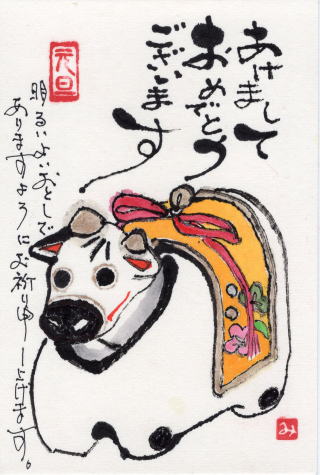 あけまして
おめでとう
ございます
元旦
明るいよいおとしで
ありますようにお祈り申し上げます。
み